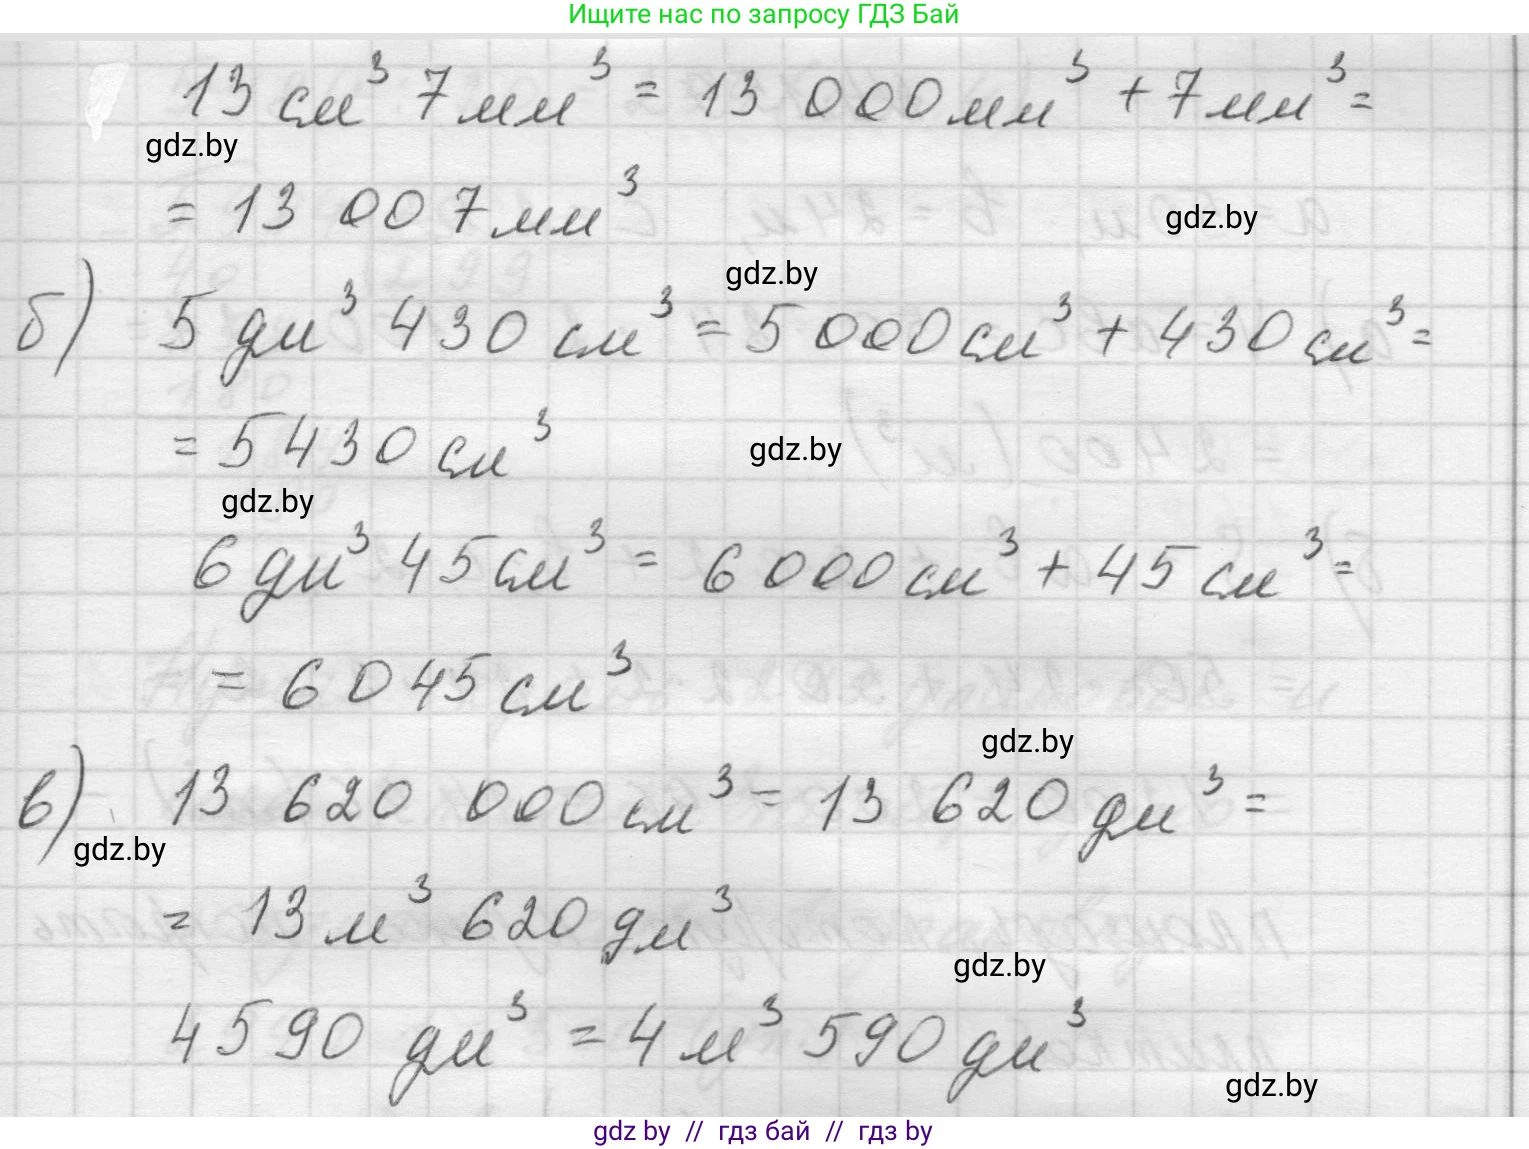 Ищите нас по запросу ГДЗ Бай
13 см³ 7 мм³ = 13 000 мм³ + 7 мм³ =
gdz.by
= 13 007 мм³
gdz.by
gdz.by
б) 5 дм³ 430 см³ = 5 000 см³ + 430 см³ =
= 5430 см³
gdz.by
gdz.by
6 дм³ 45 см³ = 6 000 см³ + 45 см³ =
= 6045 см³
gdz.by
в) 13 620 000 см³ = 13 620 дм³ =
gdz.by
= 13 м³ 620 дм³
gdz.by
4590 дм³ = 4 м³ 590 дм³
gdz.by
gdz by // гдз бай // гдз by